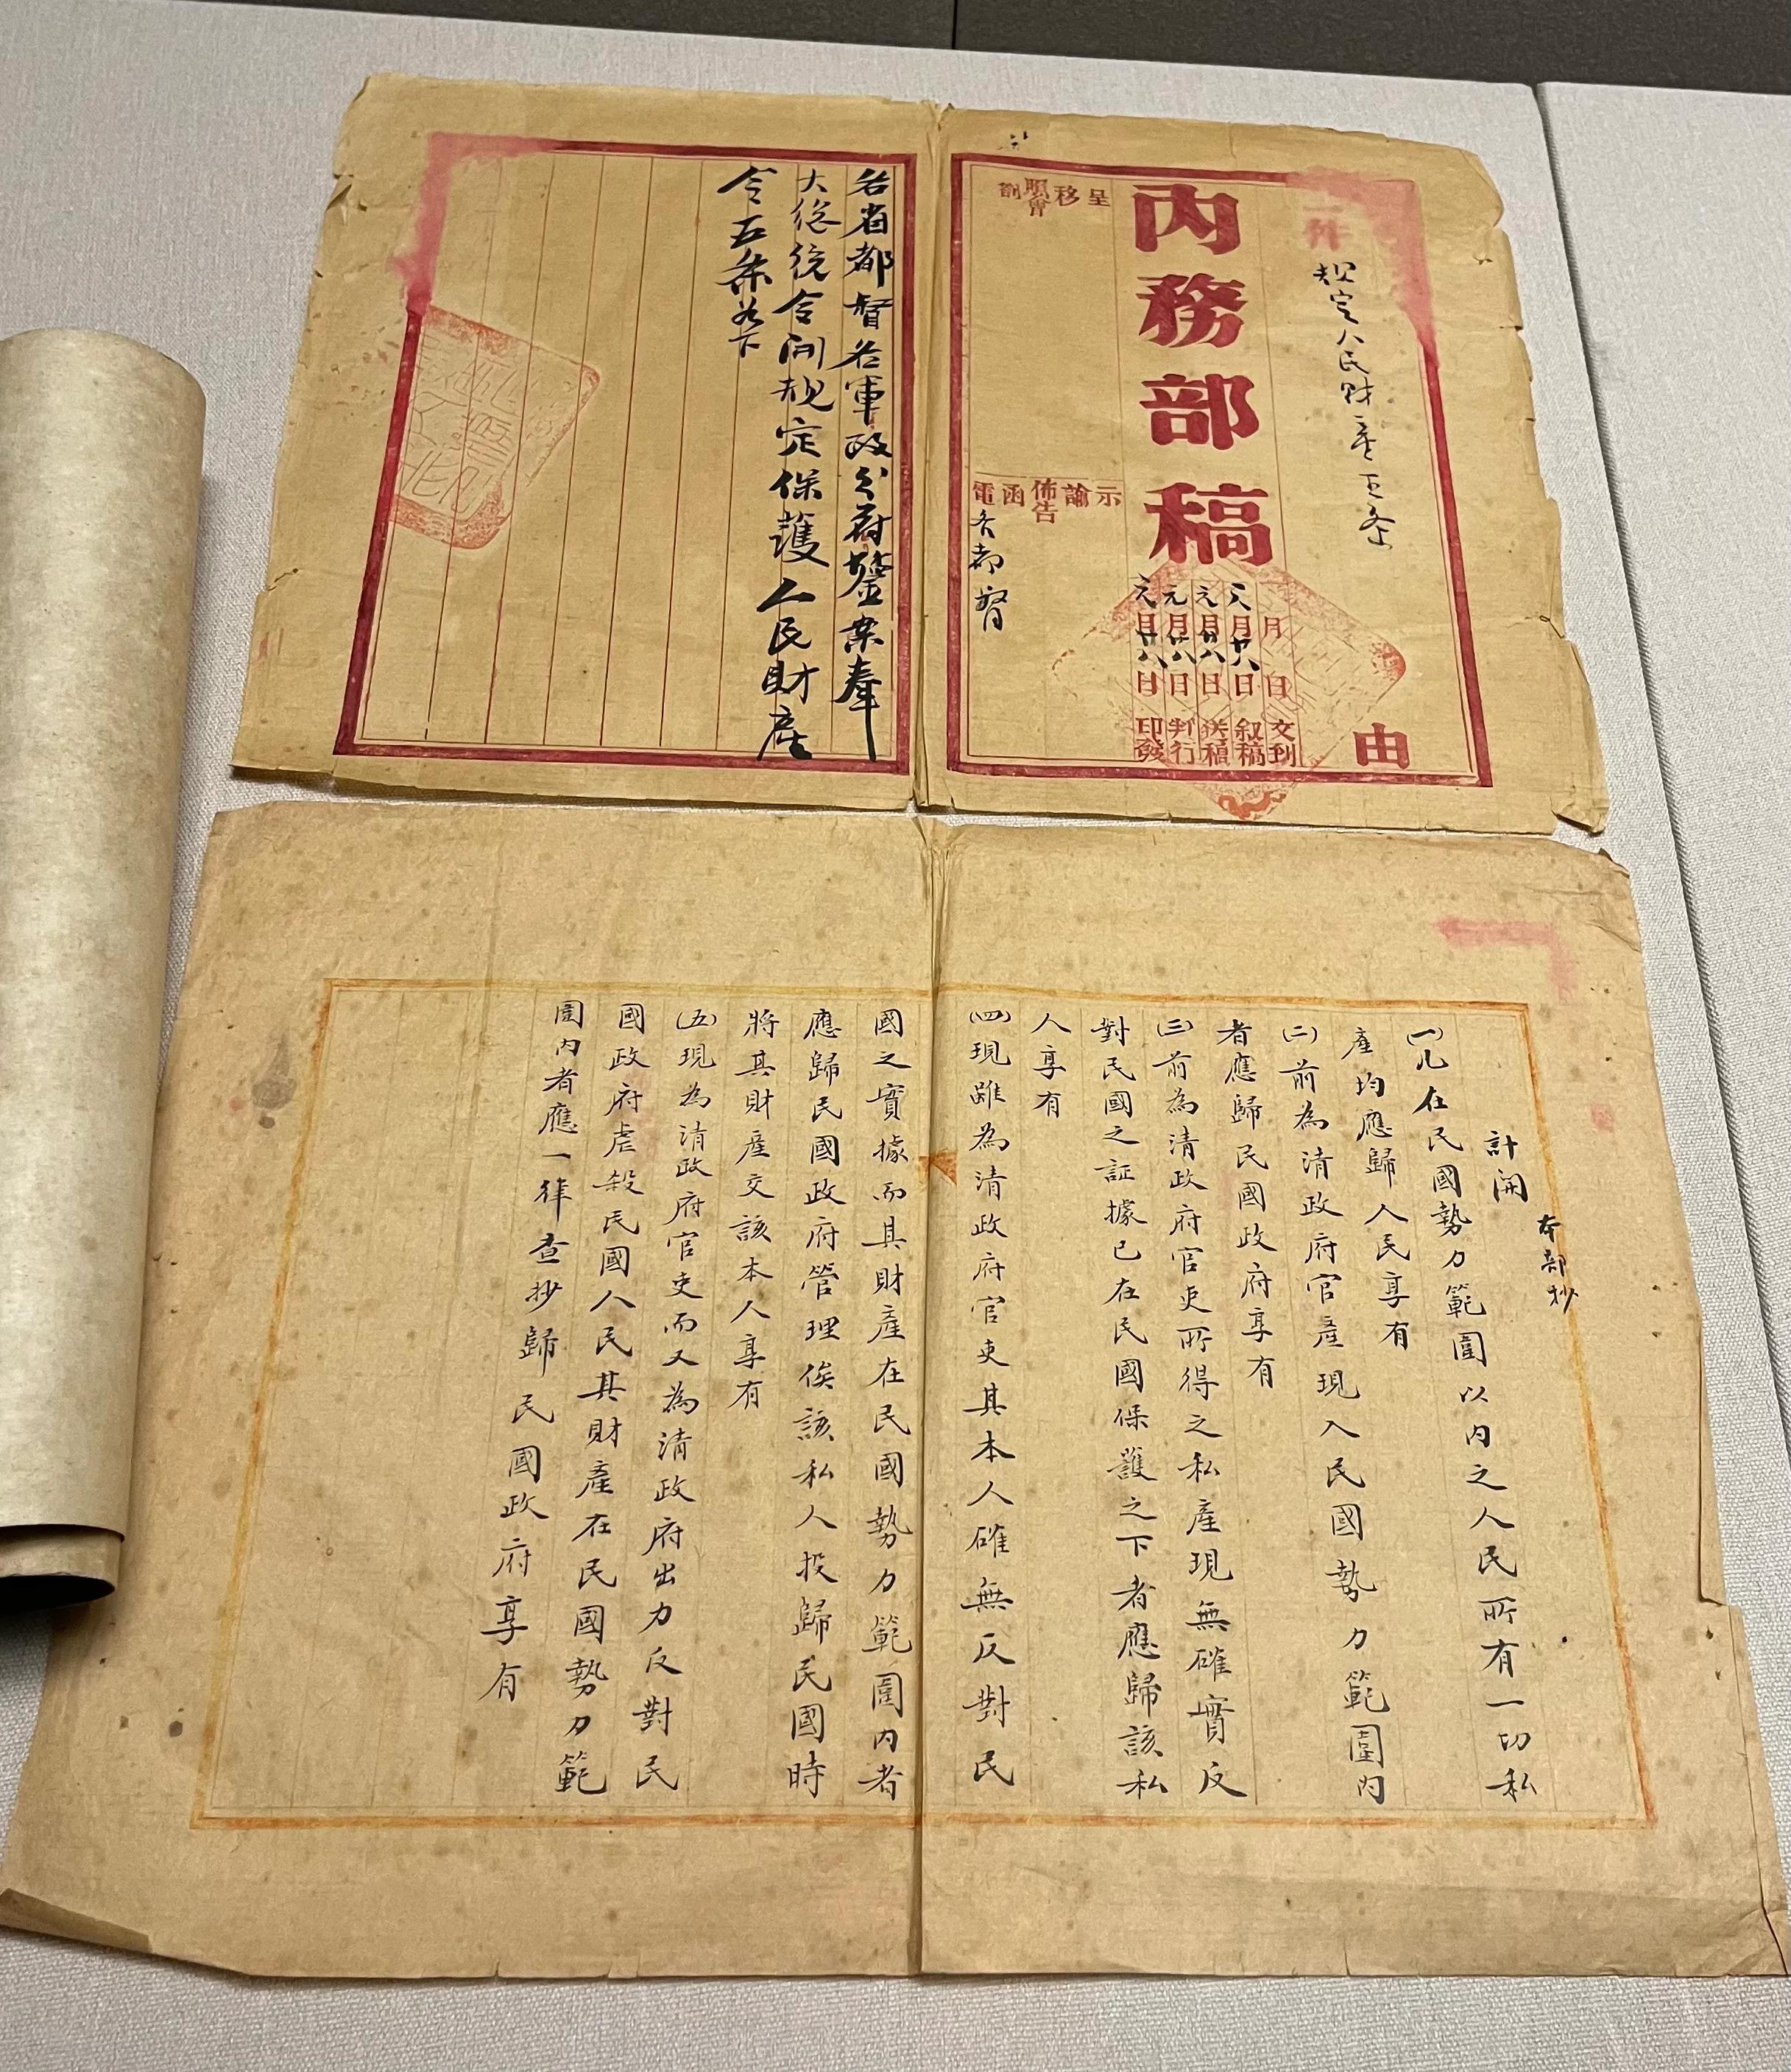 一件
規定人民財產五条
由
內務部稿
月 日 文到
元月廿八日 叙稿
元月廿八日 送稿
元月廿八日 判行
元月廿八日 印發
呈
移
照會
劄
示
諭
佈告
函
電
各都督
各省都督各軍政分府鑒案奉
大總統令開規定保護人民財產
令五条如下
本部抄
計開
(一)凡在民國勢力範圍以內之人民所有一切私
產均應歸人民享有
(二)前為清政府官產現入民國勢力範圍內
者應歸民國政府享有
(三)前為清政府官吏所得之私產現無確實反
對民國之証據已在民國保護之下者應歸該私
人享有
(四)現雖為清政府官吏其本人確無反對民
國之實據而其財產在民國勢力範圍內者
應歸民國政府管理俟該私人投歸民國時
將其財產交該本人享有
(五)現為清政府官吏而又為清政府出力反對民
國政府虐殺民國人民其財產在民國勢力範
圍內者應一律查抄歸民國政府享有